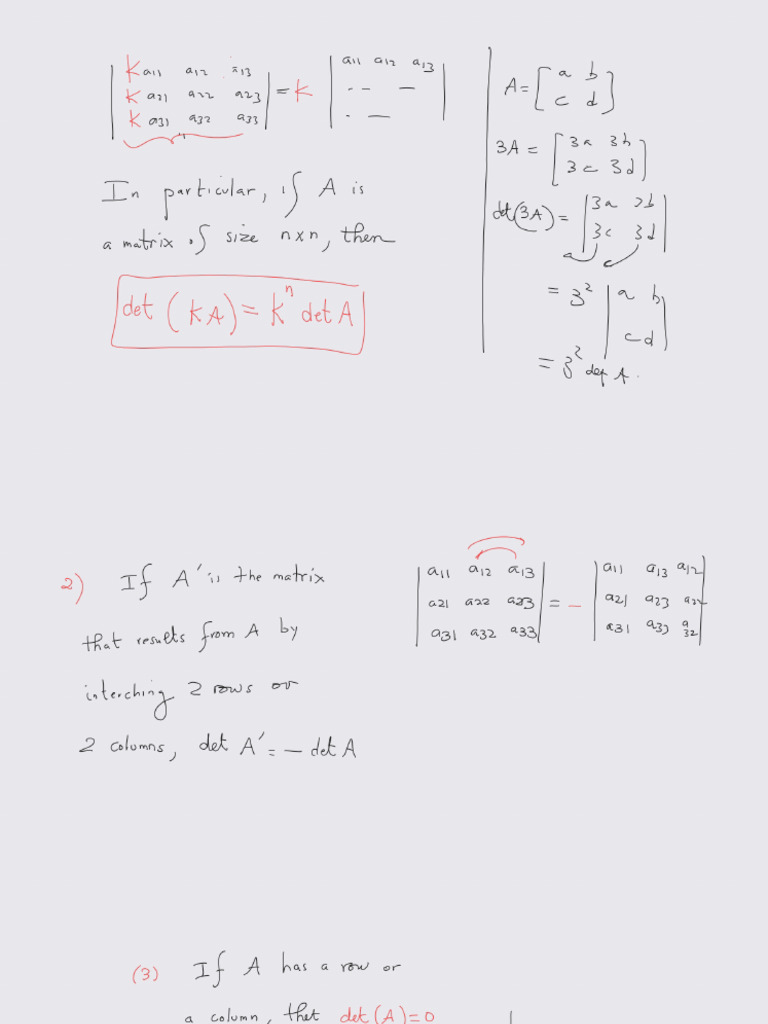 | k a11 a12 a13 | = k | a11 a12 a13 |
| k a21 a22 a23 | | -- - |
| k a31 a32 a33 | | . - |
In particular, if A is
a matrix of size n×n, then
det (kA) = k^n det A
A = [ a b
c d ]
3A = [ 3a 3b
3c 3d ]
det(3A) = | 3a 3b |
| 3c 3d |
= 3^2 | a b |
| c d |
= 3^2 det A.
2) If A' is the matrix
that results from A by
interching 2 rows or
2 columns, det A' = - det A
| a11 a12 a13 | | a11 a13 a12 |
| a21 a22 a23 | = - | a21 a23 a22 |
| a31 a32 a33 | | a31 a33 a32 |
(3) If A has a row or
a column, thet det(A)=0